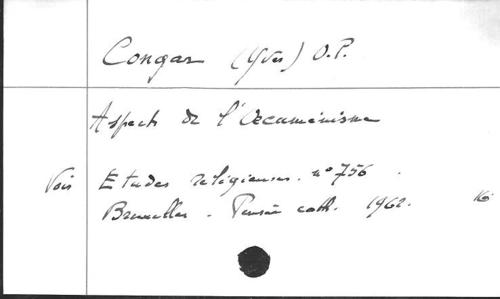 Congar (Yves) O.P.
Aspects de l'Oecuménisme
Vois Etudes religieuses. n° 756.
Bruxelles. Pensée cath. 1962. 16